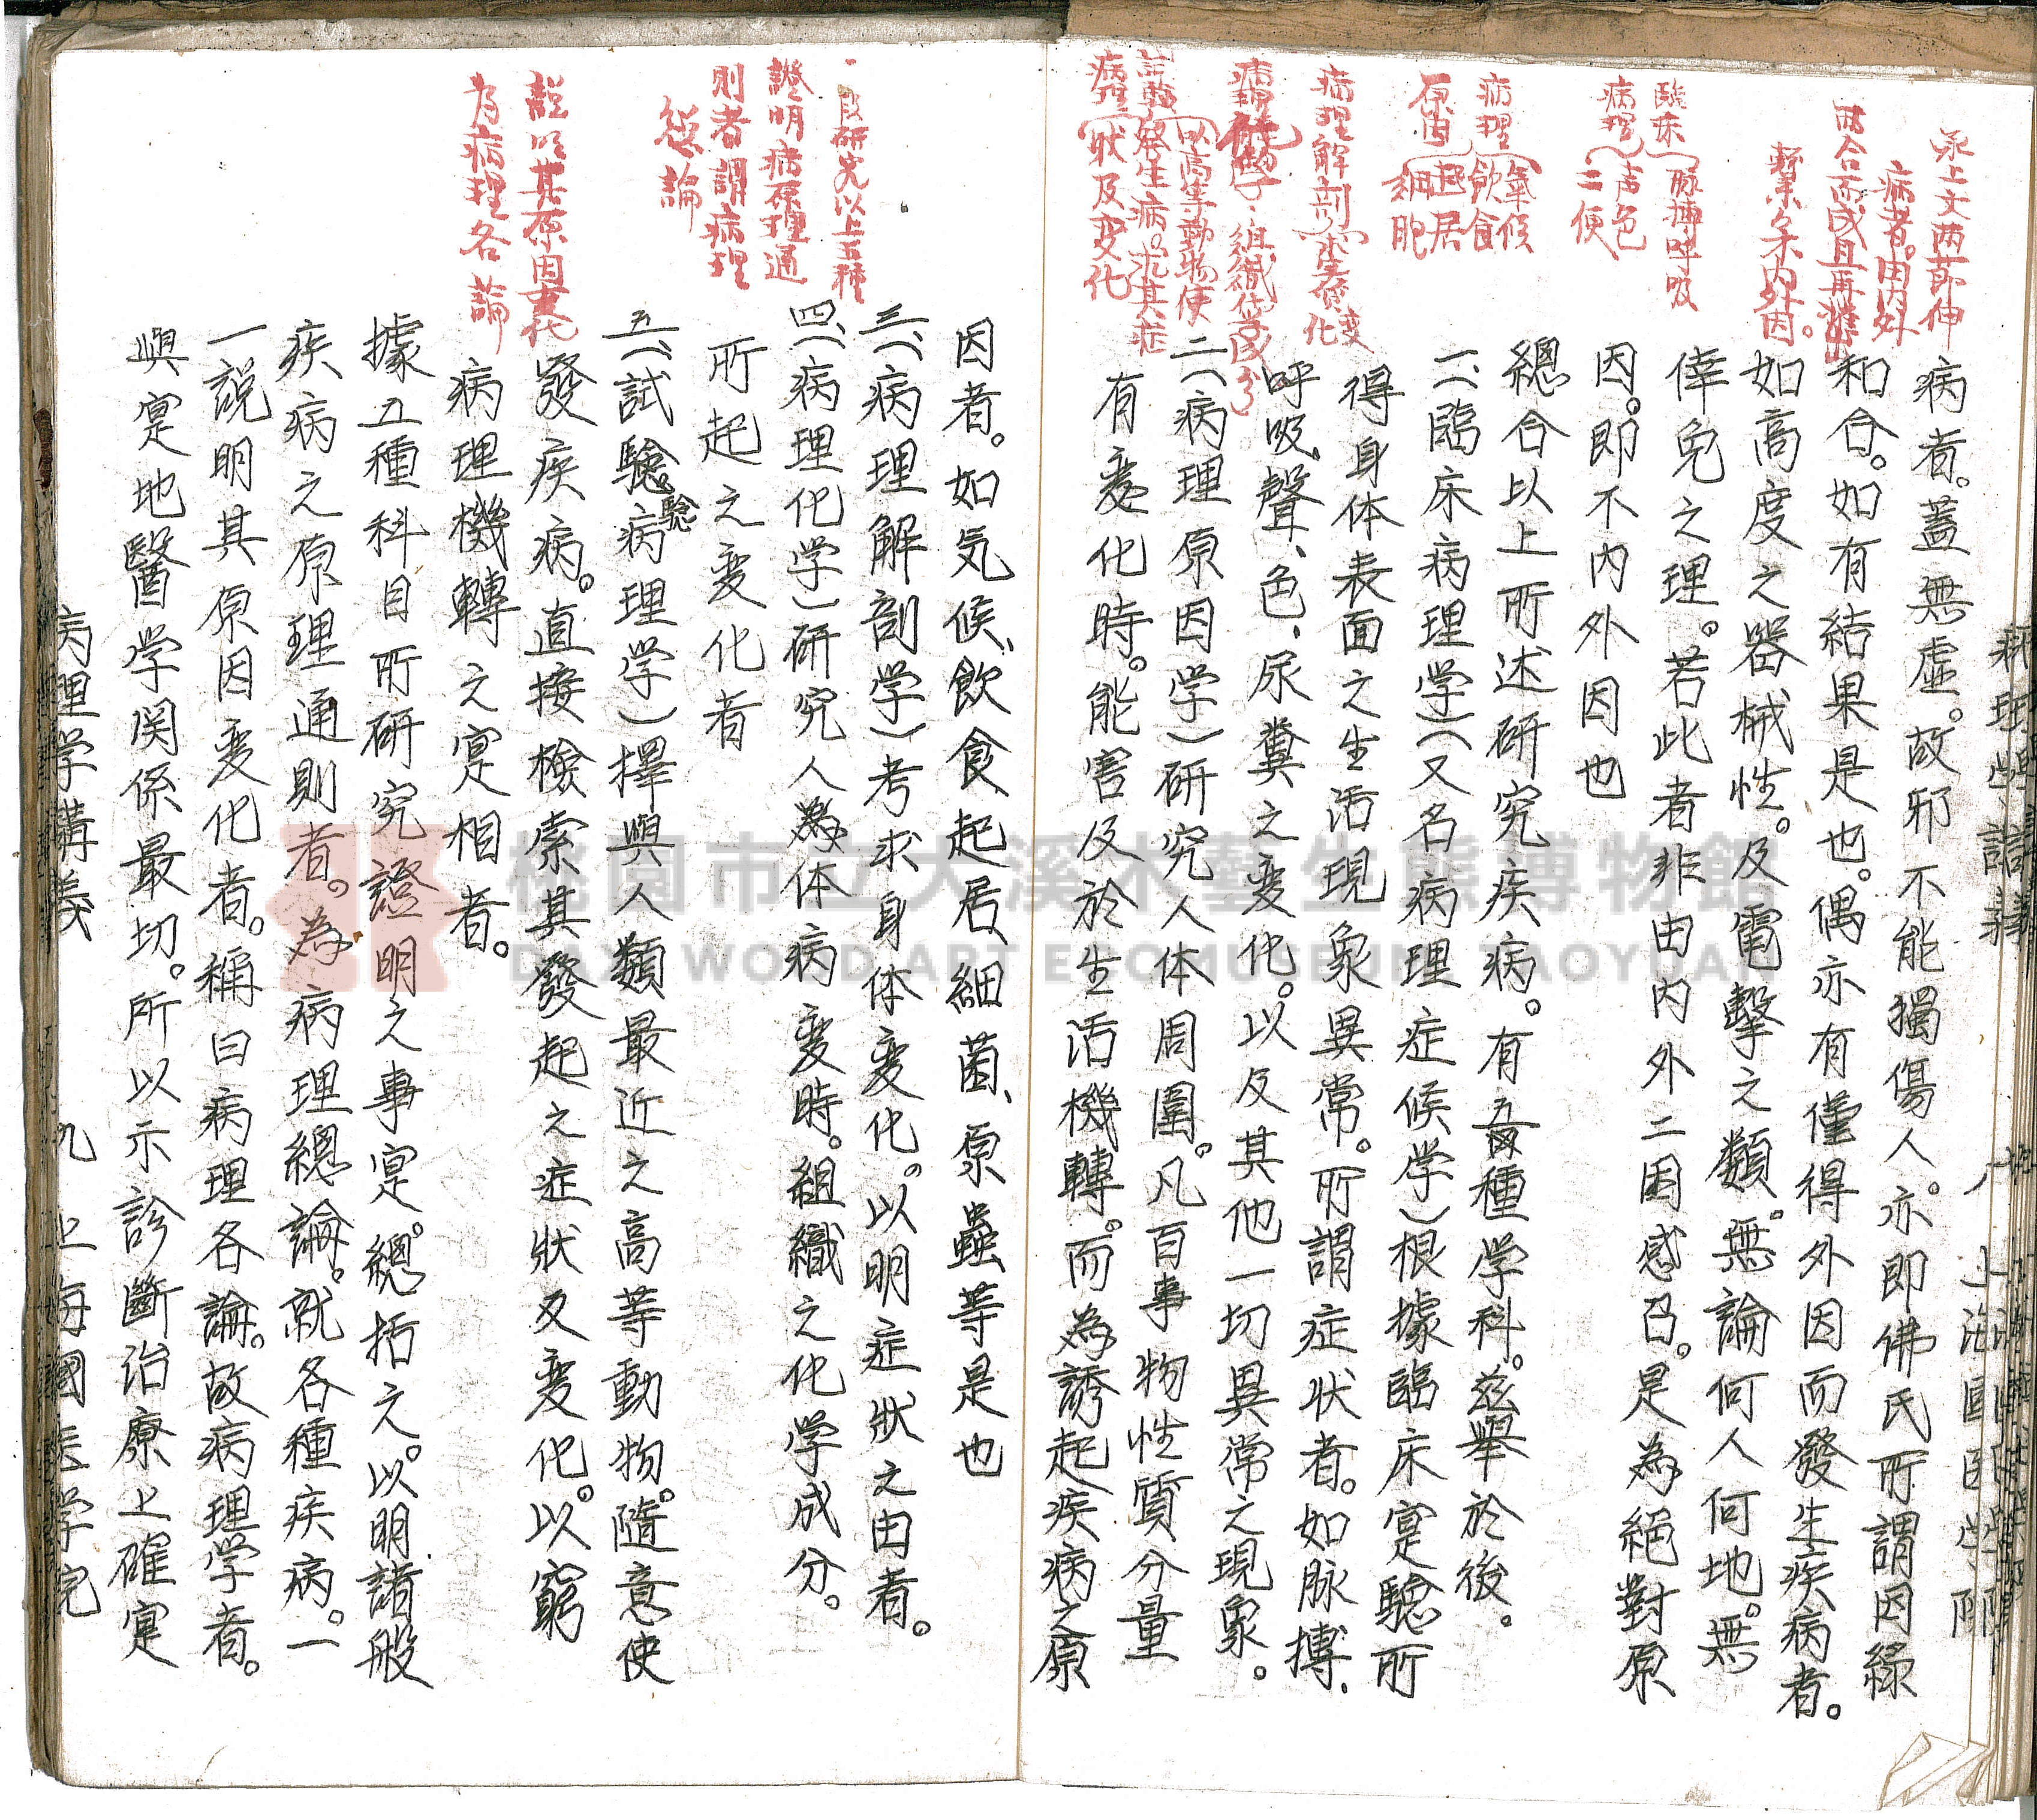 病理学講義
八
上海國医学院
承上文两節伸
病者。因内外
两合而成且再
繫多不内外因。
臨床
病理
脉搏呼吸
声色
二便
病理
原因
氣候
飲食
起居
細胞
病理解剖
病理化学
組織化学成分
試驗
病理
以高等動物使
發生病求其症
狀及变化
病者。蓋無虛。故邪不能獨傷人。亦即佛氏所謂因緣
和合。如有結果是也。偶亦有僅得外因而發生疾病者。
如高度之器械性。及電擊之類。無論何人何地。無
倖免之理。若此者非由内外二因感召。是為絕對原
因。即不内外因也
總合以上所述研究疾病。有五種学科。兹舉於後。
一、(臨床病理学)(又名病理症候学)根據臨床寔驗所
得身体表面之生活現象異常。所謂症状者。如脉搏、
呼吸、聲、色、尿糞之变化。以及其他一切異常之現象。
二、(病理原因学)研究人体周圍。凡百事物性質分量
有变化時。能害及於生活機轉。而為誘起疾病之原
一段研究以上五種
證明病原理通
則者謂病理
總論
說明其原因变化
為病理各論
因者。如気候、飲食、起居、細菌、原蟲等是也
三、(病理解剖学)考求身体变化。以明症狀之由者。
四、(病理化学)研究人為体病变時。組織之化学成分。
所起之变化者
五、(試驗病理学)擇與人類最近之高等動物。隨意使
驗
發疾病。直接檢索其發起之症狀及变化。以窮
病理機轉之寔相者。
據五種科目所研究證明之事寔。總括之。以明諸般
疾病之原理通則者。為病理總論。就各種疾病。一
一說明其原因变化者。稱曰病理各論。故病理学者。
與寔地醫学関係最切。所以示診斷治療上確寔
病理学講義
九
上海國医学院
桃園市立大溪木藝生態博物館
DAXI WOOD ART ECOMUSEUM TAOYUAN